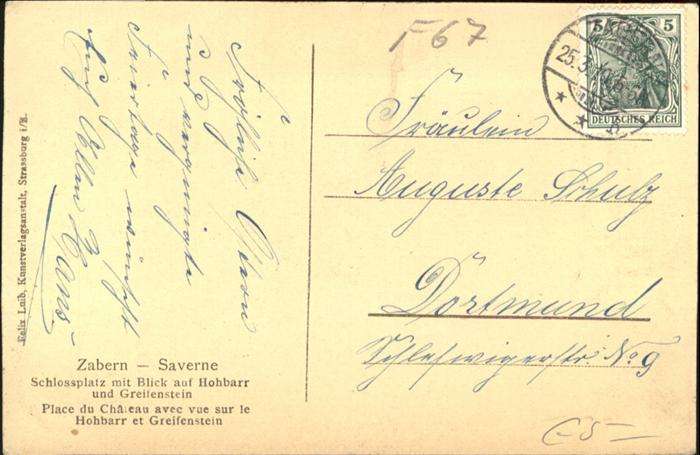 F67
5 5
DEUTSCHES REICH
25.3
Fräulein
Auguste Schulz
Dortmund
Schleswigerstr. No 9
Fröhliche Ostern
u.
Feiertage wünscht
Hans.
Felix Luib, Kunstverlagsanstalt, Strassburg i/E.
Zabern — Saverne
Schlossplatz mit Blick auf Hohbarr
und Greifenstein
Place du Château avec vue sur le
Hohbarr et Greifenstein